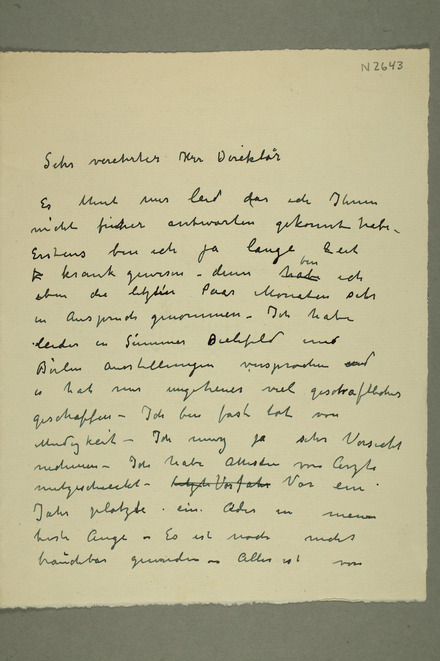 N2643
Sehr verehrter Herr Direktør
Es thut mir leid das ich Ihnen
nicht früher antworten gekonnt habe.
Erstens bin ich ja lange Zeit
krank gewesen – denn bin ich
eben die letzten Paar Monaten sehr
in Anspruch genommen – Ich habe
leider in Summer Bielefeld und
Berlin Ausstellungen versprochen und
es hat mir ungeheuer viel geschaftliches
geschaffen – Ich bin fast tot von
Mudigkeit – Ich muss ja sehr Vorsicht
nehmen – Ich habe Attesten von Arzte
mitgeschickt – Vor ein
Jahr platzte ein Ader in meinem
Auge – Es ist noch nicht
brauchbar geworden – Alles ist von